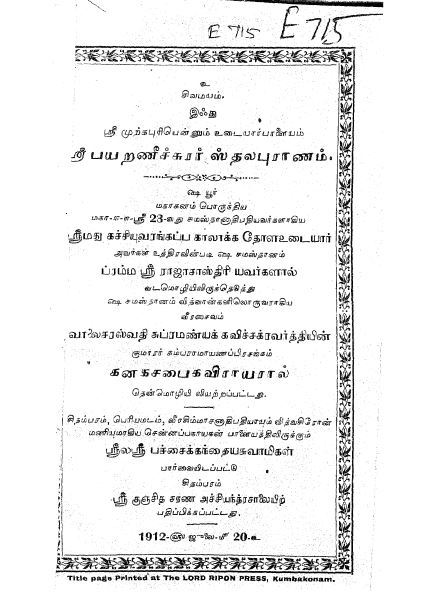 E 715 E 715
உ
சிவமயம்.
இஃது
ஸ்ரீ முற்கபுரியென்னும் உடையார்பாளையம்
ஸ்ரீ பயறணீச்சுரர் ஸ்தலபுராணம்.
ஷை யூர்
மகாகனம் பொருந்திய
மகா-ள-ள-ஸ்ரீ 23-வது சமஸ்தானாதிபதியவர்களாகிய
ஸ்ரீமது கச்சியுவரங்கப்ப காலாக்க தோளஉடையார்
அவர்கள் உத்திரவின்படி ஷை சமஸ்தானம்
ப்ரம்ம ஸ்ரீ ராஜாசாஸ்திரி யவர்களால்
வடமொழியிலிருந்தெடுத்து
ஷை சமஸ்தானம் வித்வான்களிலொருவராகிய
வீரசைவம்
வாலசரஸ்வதி சுப்ரமண்யக் கவிச்சக்ரவர்த்தியின்
குமாரர் கம்பராமாயணப்பிரசங்கம்
கனகசபைகவிராயரால்
தென்மொழியி லியற்றப்பட்டது.
சிதம்பரம், பெரியமடம், வீரசிம்மாசனாதிபதியாயும் வித்வசிரோன்
மணியுமாகிய சென்னப்பகாயகன் பாளையத்திலிருக்கும்
ஸ்ரீலஸ்ரீ பச்சைக்கந்தையசுவாமிகள்
பார்வையிடப்பட்டு
சிதம்பரம்
ஸ்ரீ குஞ்சித சரண அச்சியந்த்ரசாலையிற்
பதிப்பிக்கப்பட்டது.
1912-௵ ஜூலை-௴ 20-உ
Title page Printed at The LORD RIPON PRESS, Kumbakonam.